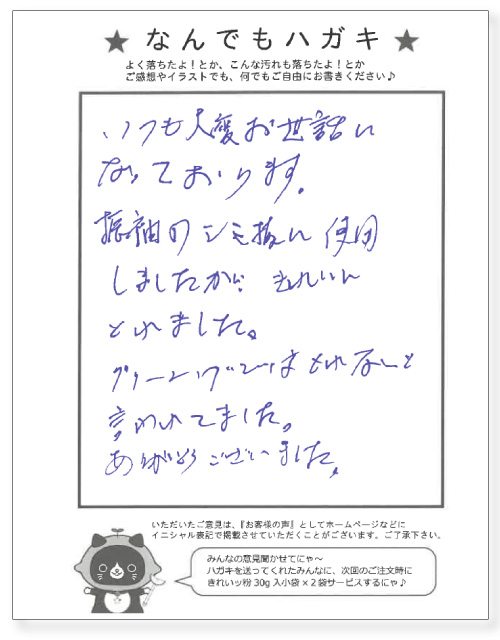 ★ なんでもハガキ ★
よく落ちたよ！とか、こんな汚れも落ちたよ！とか
ご感想やイラストでも、何でもご自由にお書きください♪
いつも大変お世話に
なっております。
振袖のシミ抜に使用
しましたが、きれいに
とれました。
クリーニングではとれないと
言われてました。
ありがとうございました。
いただいたご意見は、『お客様の声』としてホームページなどに
イニシャル表記で掲載させていただくことがございます。ご了承下さい。
みんなの意見聞かせてにゃ～
ハガキを送ってくれたみんなに、次回のご注文時に
きれいッ粉 30g 入小袋 × 2 袋サービスするにゃ♪